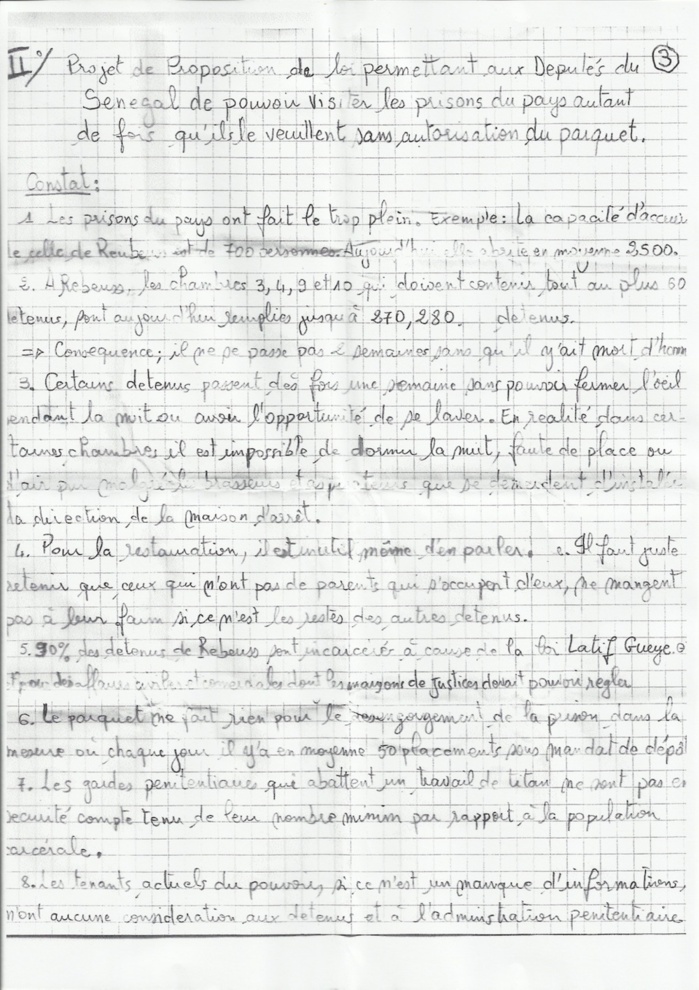 II°/ Projet de Proposition de loi permettant aux Deputés du 3
Senegal de pouvoir visiter les prisons du pays autant
de fois qu'ils le veuillent sans autorisation du parquet.
Constat:
1. Les prisons du pays ont fait le trop plein. Exemple: la capacité d'accueil
de celle de Reubeuss est de 700 personnes. Aujourd'hui elle abrite en moyenne 2500.
2. A Rebeuss, les chambres 3, 4, 9 et 10 qui doivent contenir tout au plus 60
detenus, sont aujourd'hui remplies jusqu'à 270, 280 detenus.
=> Consequence; il ne se passe pas 2 semaines sans qu'il y'ait mort d'homm
3. Certains detenus passent des fois une semaine sans pouvoir fermer l'oeil
pendant la nuit ou avoir l'opportunité de se laver. En realité dans cer-
taines chambres il est impossible de dormir la nuit, faute de place ou
d'air pur malgré les brasseurs et que se demandent d'installer
la direction de la maison d'arrêt.
4. Pour la restauration, il est inutil même d'en parler. Il faut juste
retenir que ceux qui n'ont pas de parents qui s'occupent d'eux, ne mangent
pas à leur faim si ce n'est les restes des autres detenus.
5. 90% des detenus de Rebeuss sont incarcérés à cause de la loi Latif Gueye.
pour des affaires civiles et commerciales dont les maisons de Justices devait pouvoir regler
6. Le parquet ne fait rien pour le de la prison dans la
mesure où chaque jour il y'a en moyenne 50 placements sous mandat de dépôt
7. Les gardes penitentiaires qui abattent un travail de titan ne sont pas en
securité compte tenu de leur nombre minim par rapport à la population
carcérale.
8. Les tenants actuels du pouvoir, si ce n'est un manque d'informations,
n'ont aucune consideration aux detenus et à l'administration penitentiaire